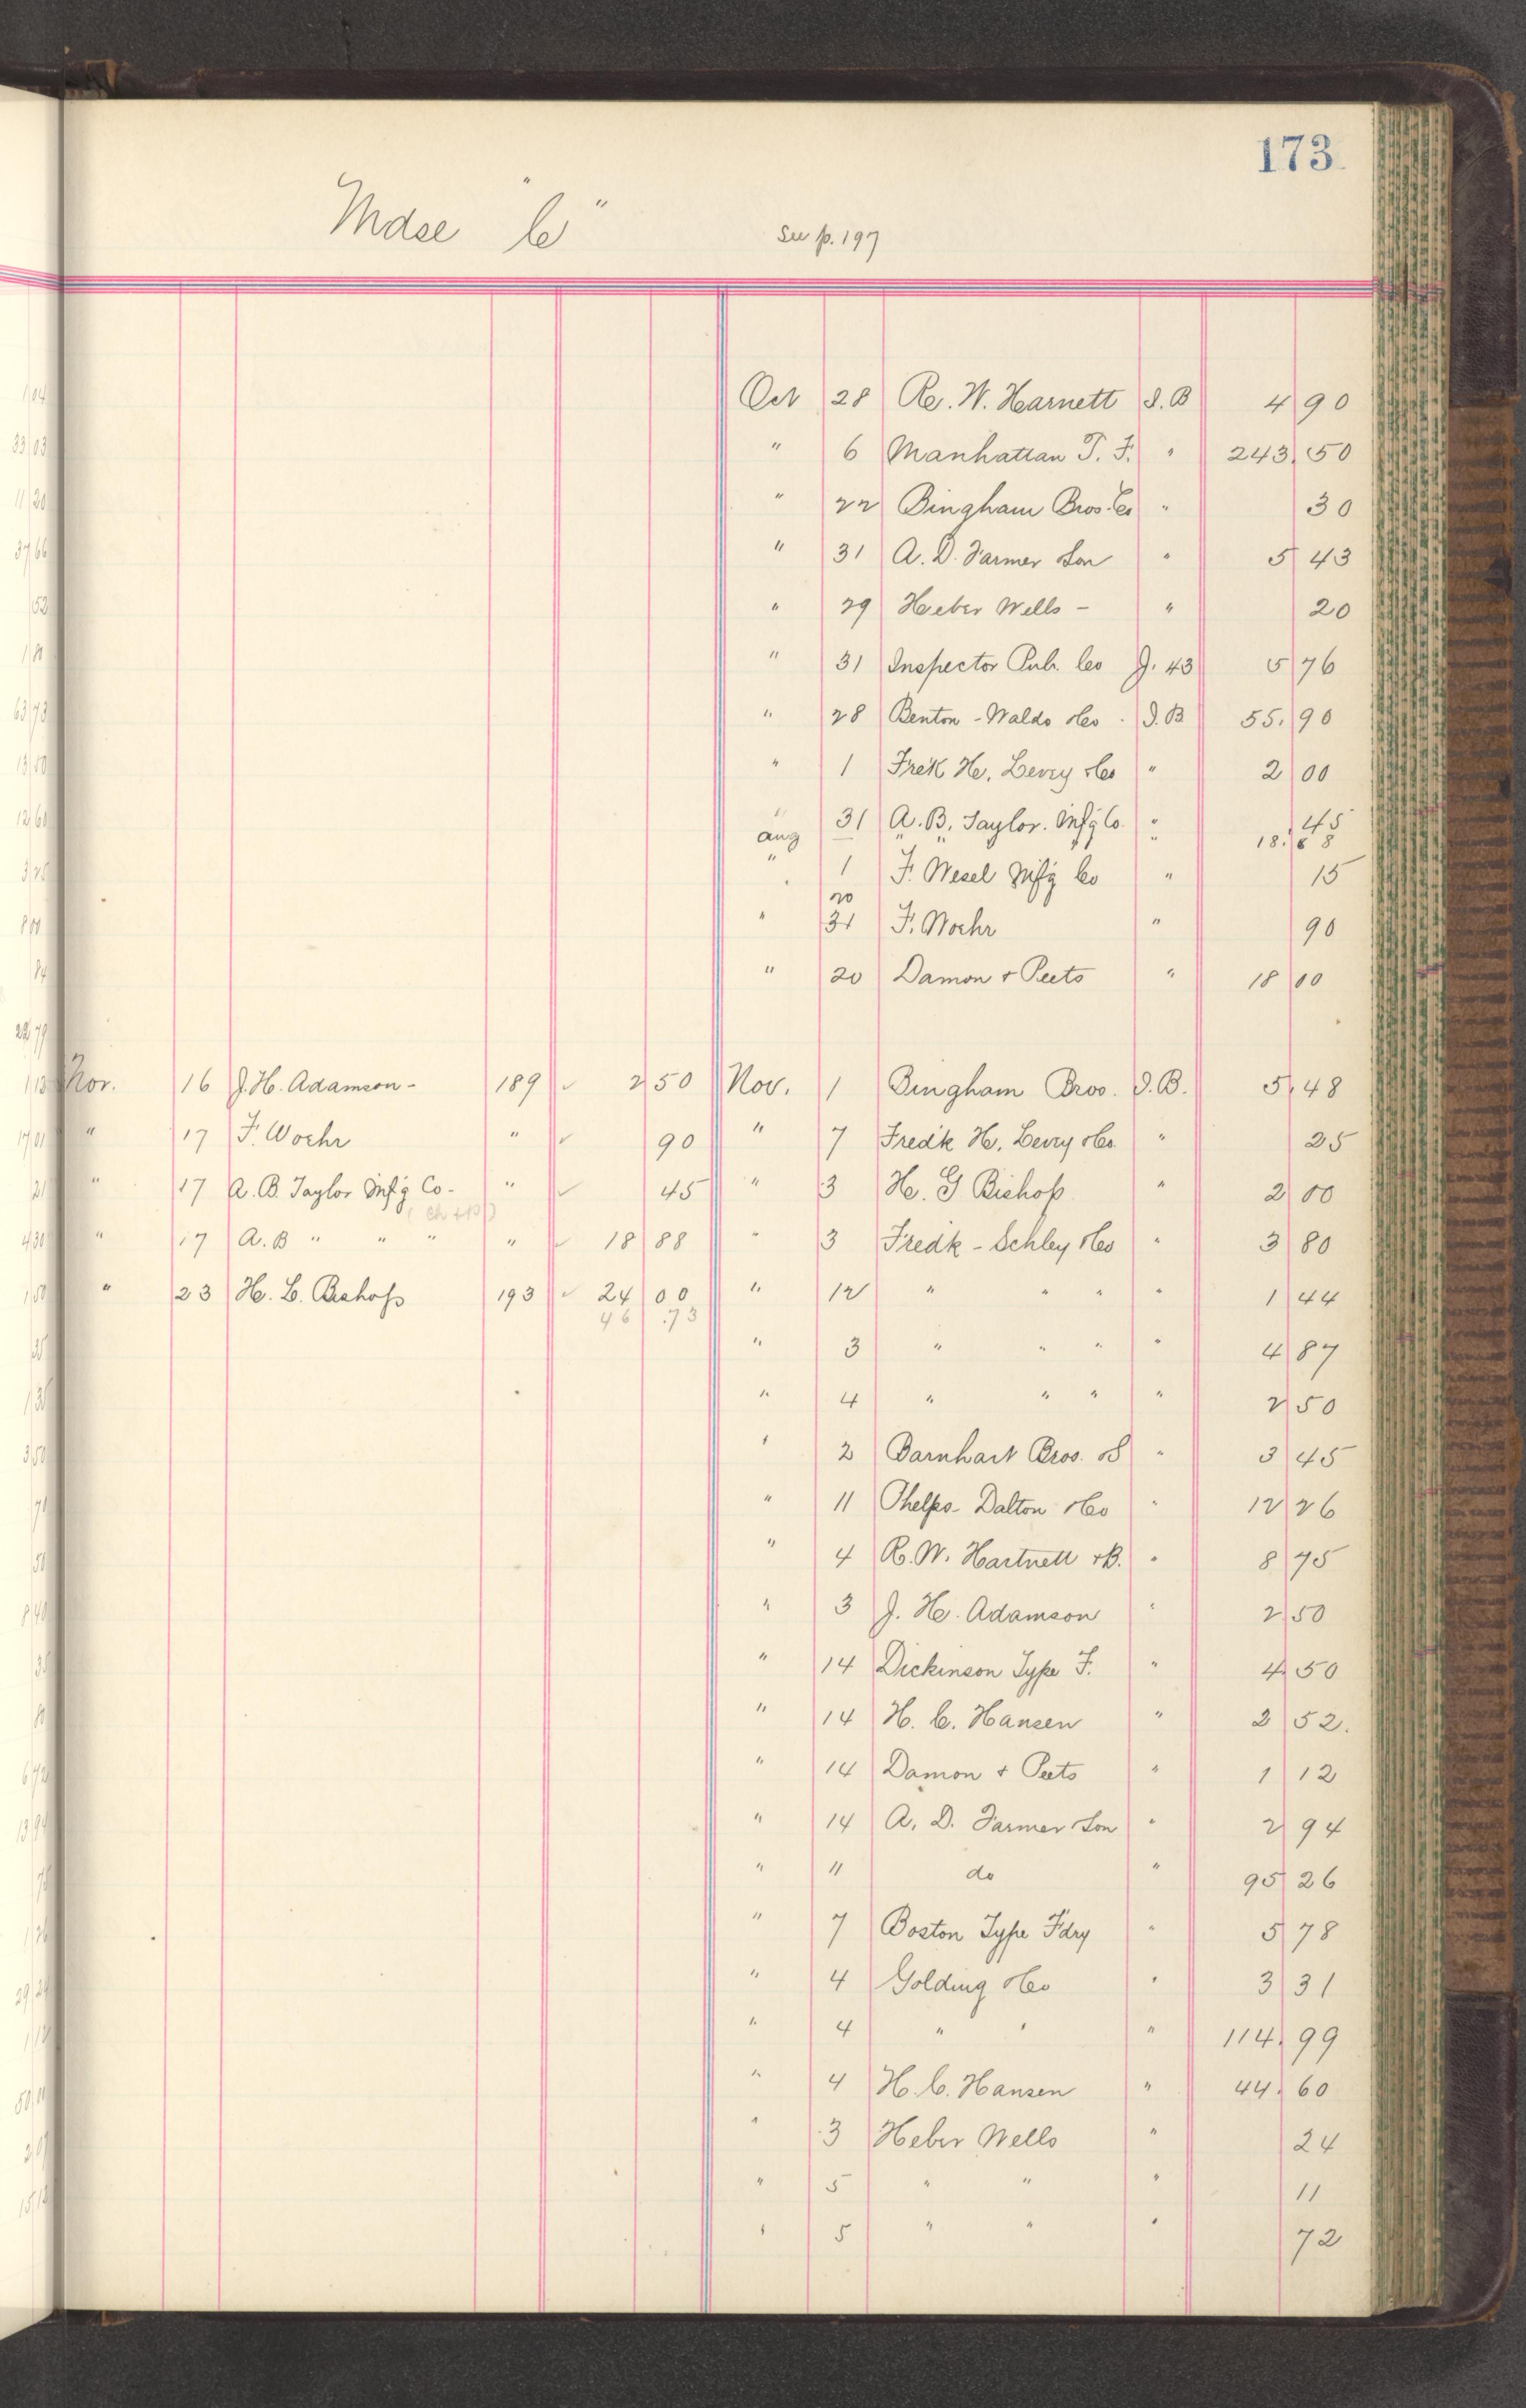 173
Mdse "C" See p. 197
Oct 28 R. W. Harnett I. B 4 90
" 6 Manhattan T. F. " 243. 50
" 22 Bingham Bros. Co " 30
" 31 A. D. Farmer Son " 5 43
" 29 Heber Wells - " 20
" 31 Inspector Pub. Co J. 43 5 76
" 28 Benton - Waldo & Co. I. B 55. 90
" 1 Fre'k H. Levey & Co " 2 00
" 31 A. B. Taylor. Mf'g Co. " 45
Aug " " " " 18. 88
" 1 F. Wesel Mf'g Co " 15
20
" 31 F. Woehr " 90
" 20 Damon & Peets " 18 00
Nov. 16 J. H. Adamson - 189 ✓ 2 50 Nov. 1 Bingham Bros. I. B. 5. 48
" 17 F. Woehr " ✓ 90 " 7 Fred'k H. Levey & Co. " 25
" 17 A. B. Taylor Mf'g Co - " ✓ 45 " 3 H. G Bishop " 2 00
" 17 A. B " " " " ✓ 18 88 " 3 Fredk - Schley & Co " 3 80
" 23 H. G. Bishop 193 ✓ 24 00 " 12 " " " " 1 44
46 .73
" 3 " " " " 4 87
" 4 " " " " 2 50
" 2 Barnhart Bros. & S " 3 45
" 11 Phelps - Dalton & Co " 12 26
" 4 R. W. Hartnett & B. " 8 75
" 3 J. H. Adamson " 2 50
" 14 Dickinson Type F. " 4. 50
" 14 H. C. Hansen " 2 52.
" 14 Damon & Peets " 1 12
" 14 A. D. Farmer Son " 2 94
" 11 do " 95 26
" 7 Boston Type F'dry " 5 78
" 4 Golding & Co " 3 31
" 4 " " " 114. 99
" 4 H. C. Hansen " 44. 60
" 3 Heber Wells " 24
" 5 " " " 11
" 5 " " " 72